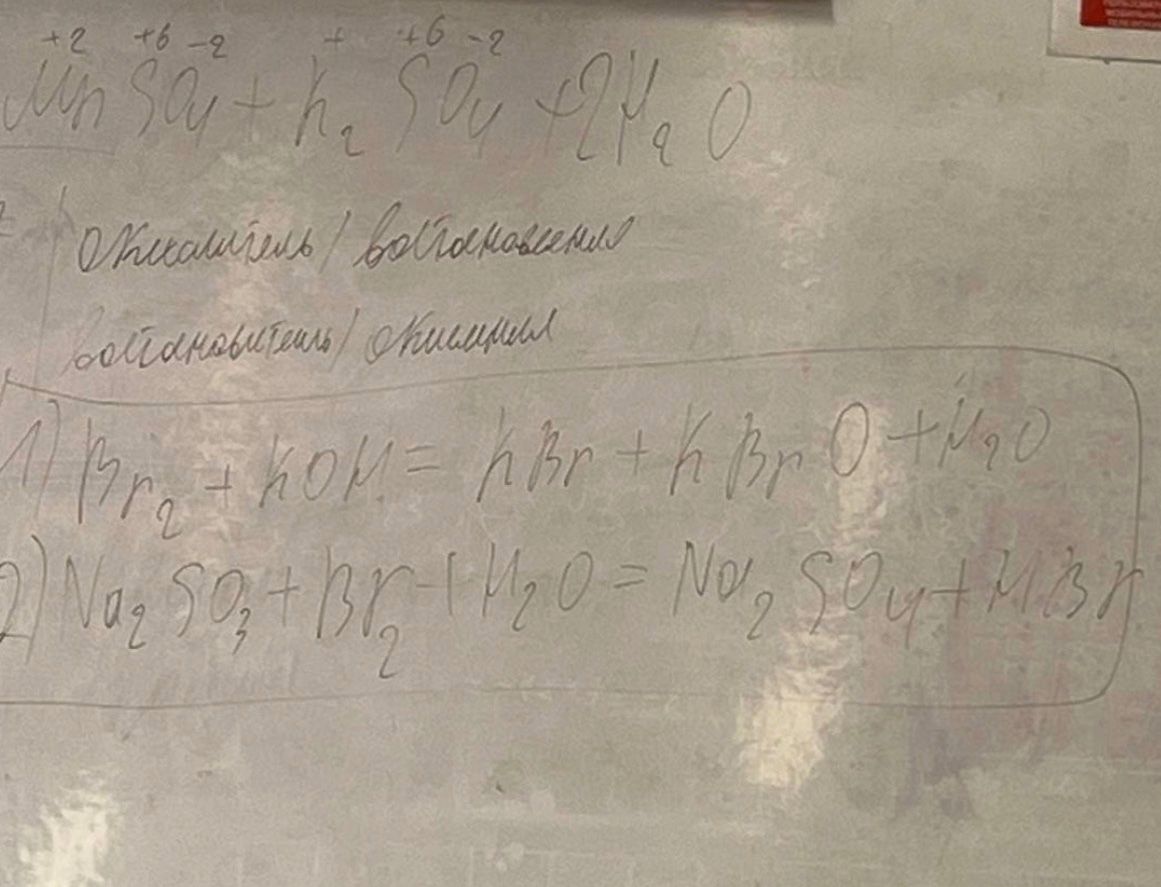 +2 +6 -2 + +6 -2
MnSO4 + K2SO4 + 2H2O
окислитель / востановления
востановитель / окисления
1) Br2 + KOH = KBr + KBrO + H2O
2) Na2SO3 + Br2 + H2O = Na2SO4 + HBr